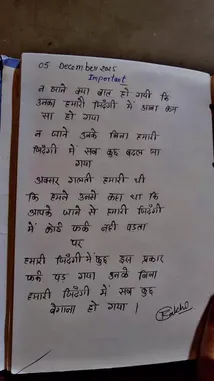 05 December 2025
Important
न जाने क्या बात हो गयी कि
उनका हमारी जिंदगी में आना कम
सा हो गया
न जाने उनके बिना हमारी
जिंदगी में सब कुछ बदल सा
गया
अक्सर गलती हमारी थी
कि हमने उनसे कहा था कि
आपके जाने से हमारी जिंदगी
में कोई फर्क नही पडता
पर
हमारी जिंदगी में कुछ इस प्रकार
फर्क पड गया उनके बिना
हमारी जिंदगी में सब कुछ
बेगाना हो गया ।
Rakhi